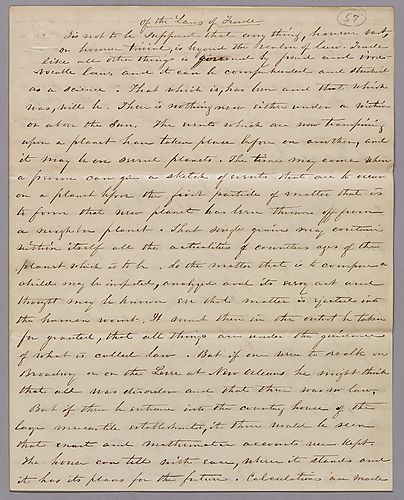 Of the Laws of Trade
57
Tis not to be supposed that any thing, however vast,
or however trivial, is beyond the realm of law. Trade
like all other things is governed by fixed and irre-
vocable laws and it can be comprehended and studied
as a science. That which is, has been and that which
was, will be. There is nothing new either under or within
or above the Sun. The events which are now transpiring
upon a planet have taken place before on another, and
it may be on several planets. The time may come when
a person can give a sketch of events that are to occur
on a planet before the first particle of matter that is
to form that new planet has been thrown off from
a neighbor planet. That single grain may contain
within itself all the actualities of countless ages of the
planet which is to be. So the matter that is to compose a
child may be inspected, analyzed and its every act and
thought may be known ere that matter is ejected into
the human womb. It must then in the outset be taken
for granted, that all things are under the guidance
of what is called law. But if one were to walk on
Broadway or on the Levee at New Orleans he might think
that all was disorder and that there was no law.
But if then he entered into the counting house of the
large mercantile establishments, it there would be seen
that exact and mathematical accounts were kept.
The house can tell with ease, where it stands and
it has its plans for the future. Calculations are made